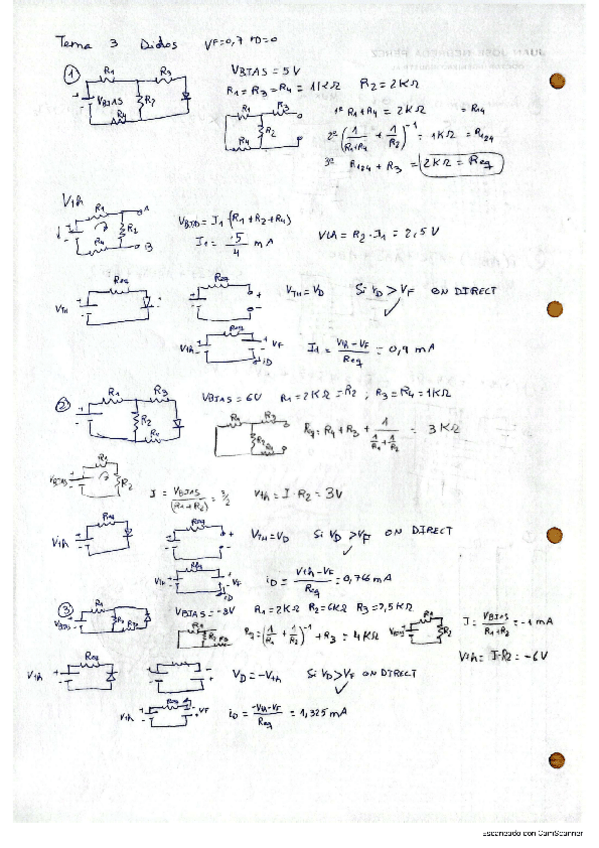 Tema 3 Diodos VF=0,7 rD=0
① R1 R3 VBIAS R2 R4
VBIAS = 5V
R1 = R3 = R4 = 1KΩ R2 = 2KΩ
R1 R3 R2 R4
1º R1+R4 = 2KΩ = R14
2º (1/(R1+R4) + 1/R2)^-1 = 1KΩ = R124
3º R124 + R3 = 2KΩ = Req
Vth
R1 A R2 R4 B
VBIAS = I1·(R1+R2+R4)
I1 = 5/4 mA
Vth = R2·I1 = 2,5V
VTH Req Req VTH = VD Si VD > VF ON DIRECT
Vth Req VF iD I1 = (Vth-VF)/Req = 0,9 mA
② R1 R3 R2 R4
VBIAS = 6V R1 = 2KΩ = R2 ; R3 = R4 = 1KΩ
R1 R3 R2 R4 Req = R4 + R3 + 1/(1/R1 + 1/R2) = 3KΩ
VBIAS R1 R2 I = VBIAS/(R1+R2) = 3/2 Vth = I·R2 = 3V
Vth Req Req VTH = VD Si VD > VF ON DIRECT
Vth Req VF iD iD = (Vth-VF)/Req = 0,766 mA
③ VBIAS R1 R2 R3 VBIAS = -8V R1 = 2KΩ R2 = 6KΩ R3 = 2,5KΩ
R1 R2 R3 Req = (1/R1 + 1/R2)^-1 + R3 = 4KΩ VBIAS R1 R2 I = VBIAS/(R1+R2) = -1 mA
Vth = I·R2 = -6V
Vth Req VD = -Vth Si VD > VF ON DIRECT
Vth Req VF iD = (-Vth-VF)/Req = 1,325 mA
Escaneado con CamScanner